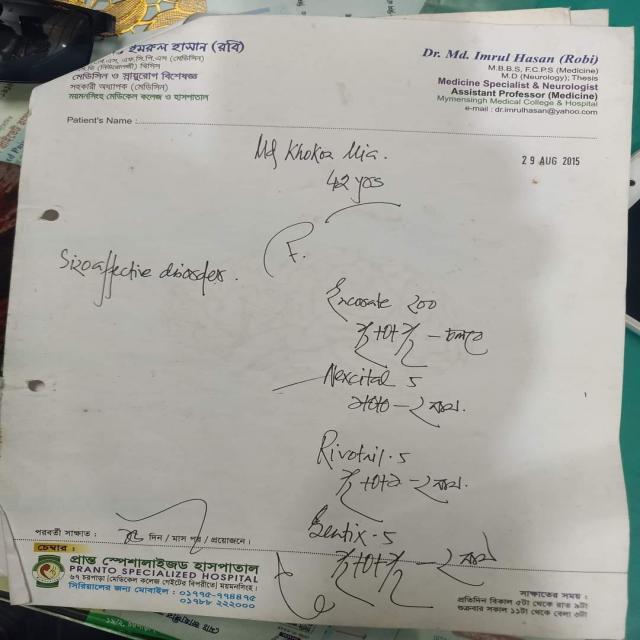 ইমরুল হাসান (রবি)
মেডিসিন ও স্নায়ুরোগ বিশেষজ্ঞ
সহকারী অধ্যাপক (মেডিসিন)
ময়মনসিংহ মেডিকেল কলেজ ও হাসপাতাল
Dr. Md. Imrul Hasan (Robi)
M.B.B.S, F.C.P.S (Medicine)
M.D (Neurology); Thesis
Medicine Specialist & Neurologist
Assistant Professor (Medicine)
Mymensingh Medical College & Hospital
e-mail : dr.imrulhasan@yahoo.com
Patient's Name :
Md Khokon Mia.
29 AUG 2015
42 yrs
Sizoaffective disorders.
Encosate 200
চলবে
Nexcital 5
Rivotril .5
পরবর্তী সাক্ষাত : দিন / মাস পর / প্রয়োজনে।
চেম্বার :
প্রান্ত স্পেশালাইজড হাসপাতাল
PRANTO SPECIALIZED HOSPITAL
৬৭ চরপাড়া (মেডিকেল কলেজ গেইটের বিপরীতে) ময়মনসিংহ।
সিরিয়ালের জন্য মোবাইল : ০১৭৭৫-৭৭৪৪৭৫
০১৭৮৮ ২২২০০০
সাক্ষাতের সময় :
প্রতিদিন বিকাল ৫টা থেকে রাত ৯টা
শুক্রবার সকাল ১১টা থেকে বেলা